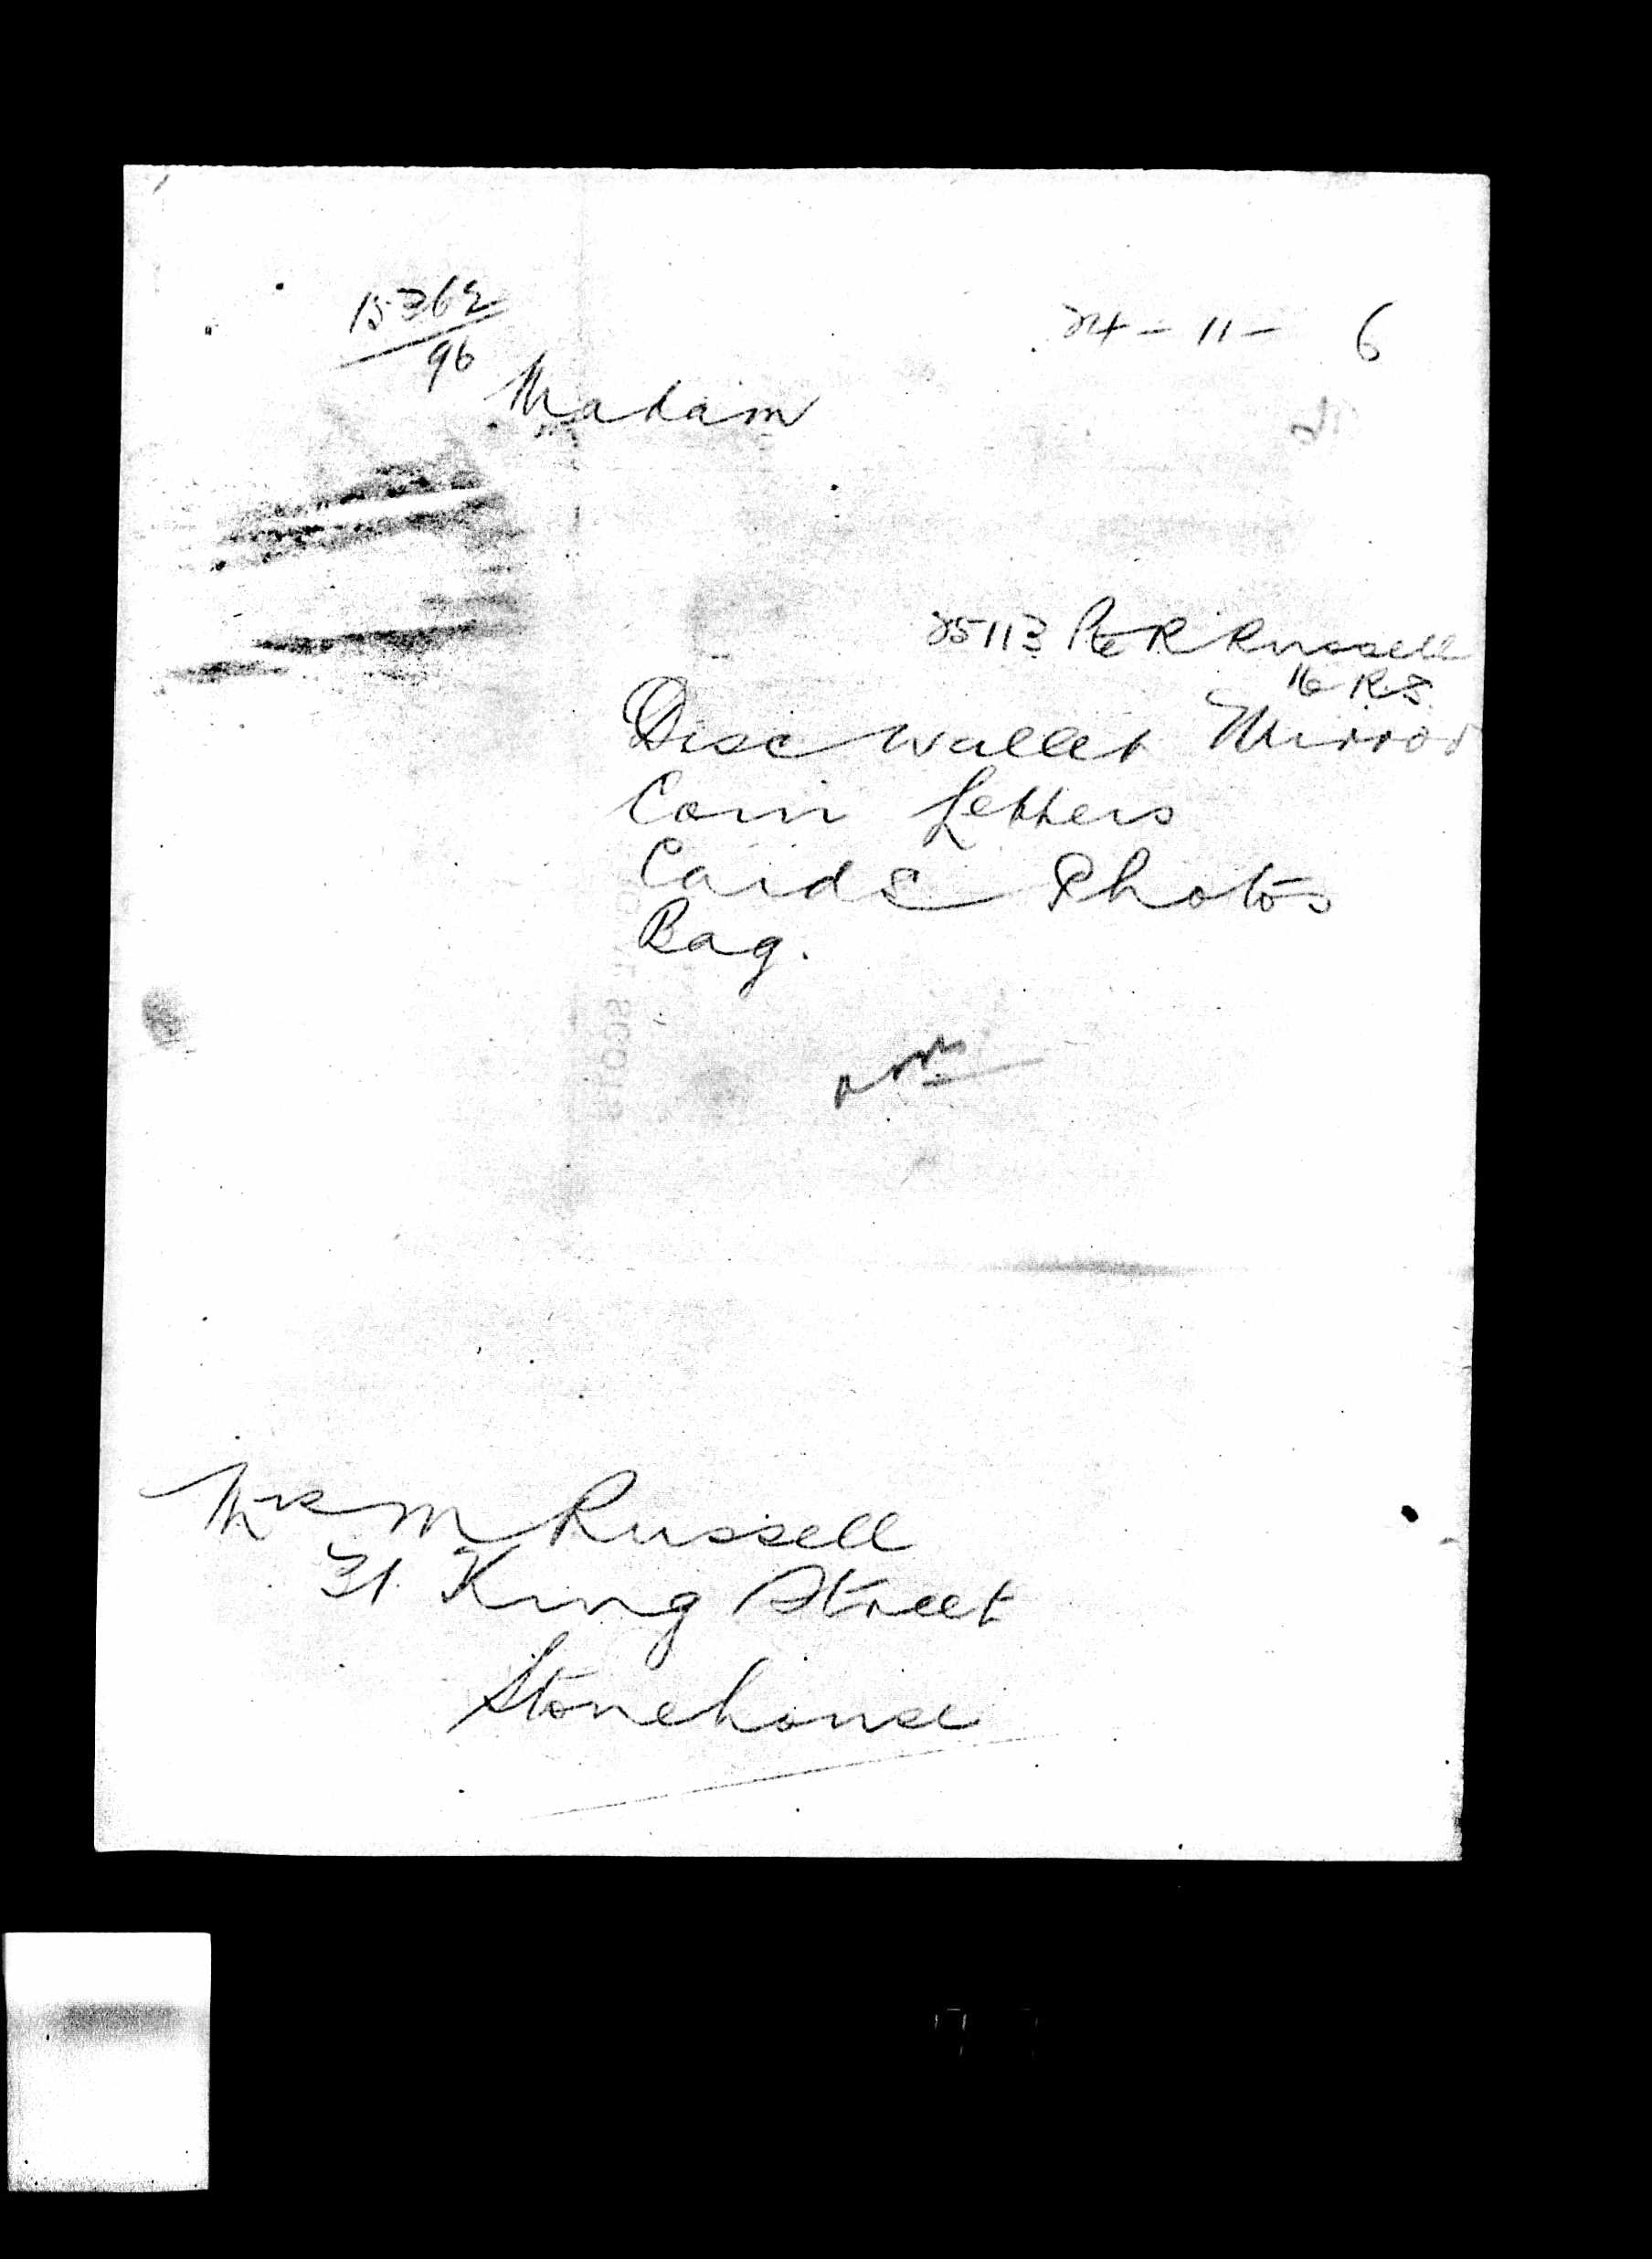 15362
96
24 - 11 - 6
Madam
25113 Pte R Russell
16 R.S.
Disc Wallet Mirror
Coin Letters
Cards Photos
Bag.
Mrs M Russell
31. King Street
Stonehouse